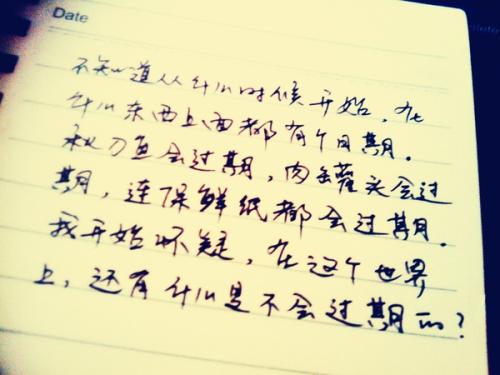 Date
不知道从什么时候开始，在
什么东西上面都有个日期。
秋刀鱼会过期，肉罐头会过
期，连保鲜纸都会过期。
我开始怀疑，在这个世界
上，还有什么是不会过期的？